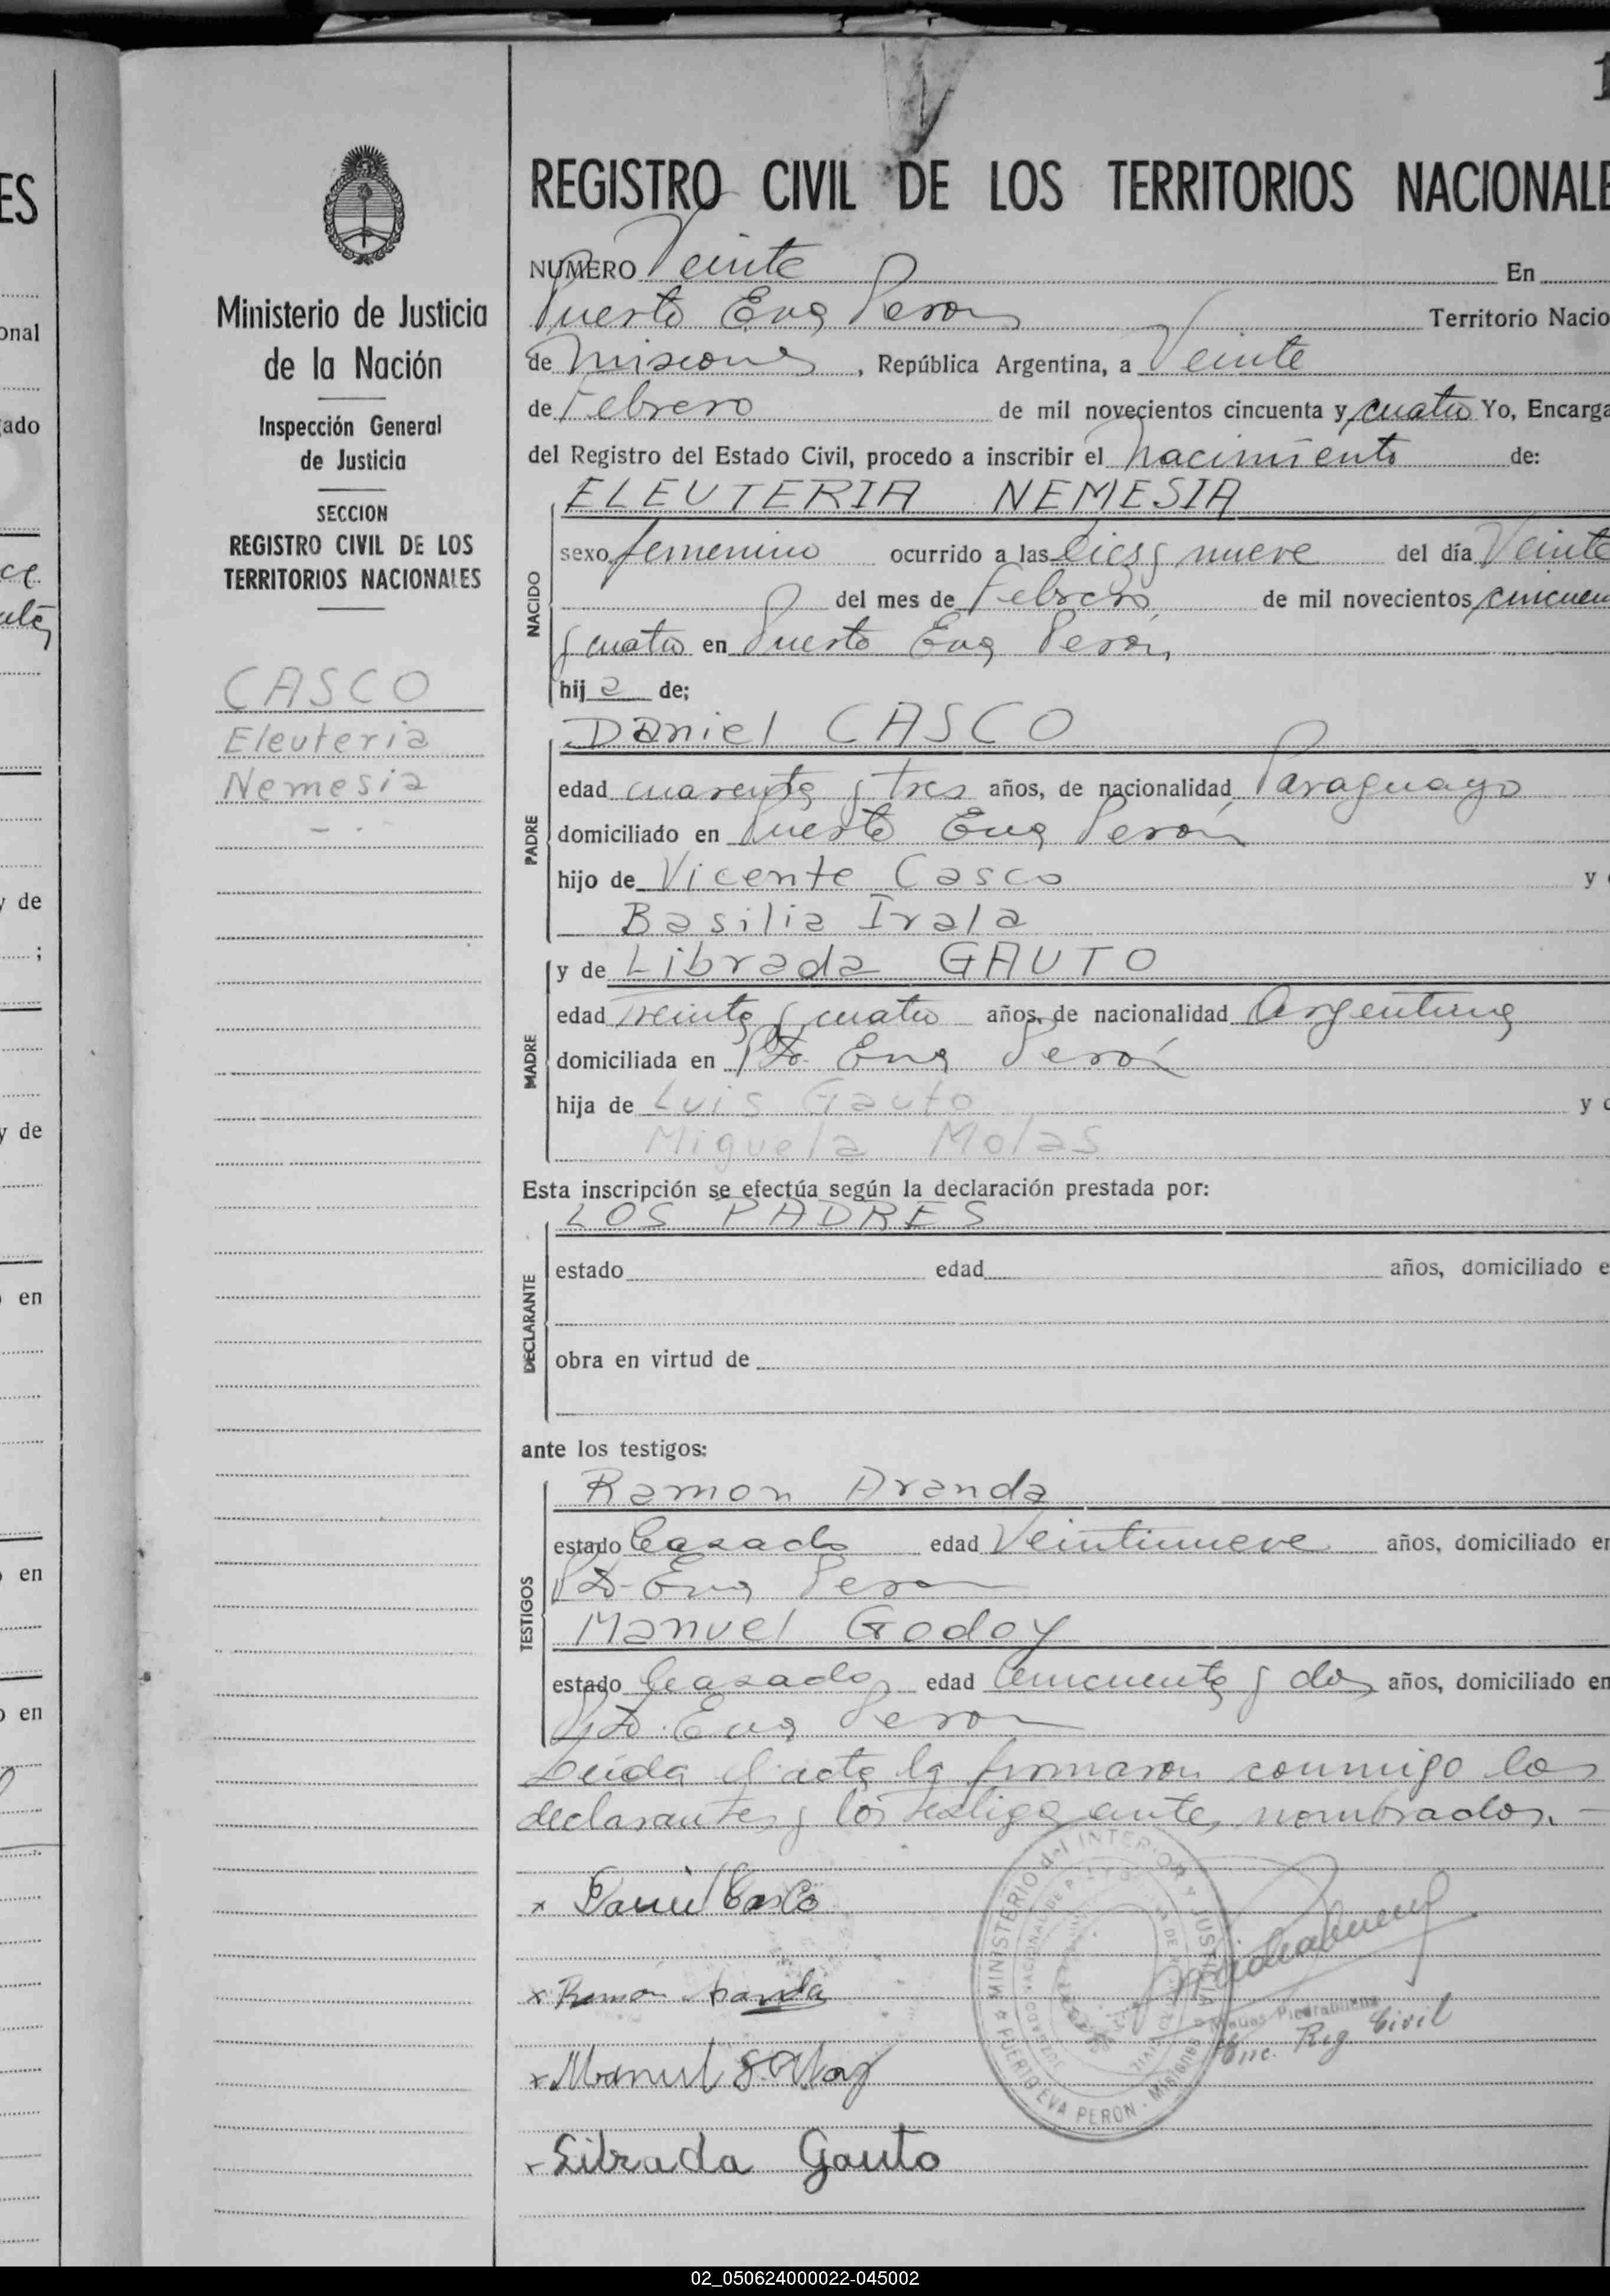 1
REGISTRO CIVIL DE LOS TERRITORIOS NACIONALE
Ministerio de Justicia
de la Nación
Inspección General
de Justicia
SECCION
REGISTRO CIVIL DE LOS
TERRITORIOS NACIONALES
CASCO
Eleuteria
Nemesia
NUMERO Veinte En
Puerto Eva Peron Territorio Nacio
de Misiones, República Argentina, a Veinte
de Febrero de mil novecientos cincuenta y cuatro Yo, Encarga
del Registro del Estado Civil, procedo a inscribir el nacimiento de:
NACIDO
ELEUTERIA NEMESIA
sexo femenino ocurrido a las diez y nueve del día Veinte
del mes de Febrero de mil novecientos cincuen
y cuatro en Puerto Eva Perón
hij a de;
PADRE
Daniel CASCO
edad cuarenta y tres años, de nacionalidad Paraguayo
domiciliado en Puerto Eva Perón
hijo de Vicente Casco y
Basilia Irala
MADRE
y de Librada GAUTO
edad treinta y cuatro años, de nacionalidad Argentina
domiciliada en Pto. Eva Perón
hija de Luis Gauto y
Miguela Molas
Esta inscripción se efectúa según la declaración prestada por:
DECLARANTE
LOS PADRES
estado edad años, domiciliado e
obra en virtud de
ante los testigos:
TESTIGOS
Ramon Aranda
estado Casado edad Veintinueve años, domiciliado en
Pto. Eva Peron
Manuel Godoy
estado Casado edad Cincuenta y dos años, domiciliado en
Pto. Eva Peron
Leida el acta la firmaron conmigo los
declarantes y los testigos ante nombrados.-
x Daniel Casco
x Ramón Aranda
x Manuel Godoy
x Librada Gauto
MINISTERIO del INTERIOR Y JUSTICIA
PUERTO EVA PERON - Misiones
Matias Piedrabuena
Enc. Reg Civil
ES
onal
ado
y de
;
y de
en
en
en
02_050624000022-045002